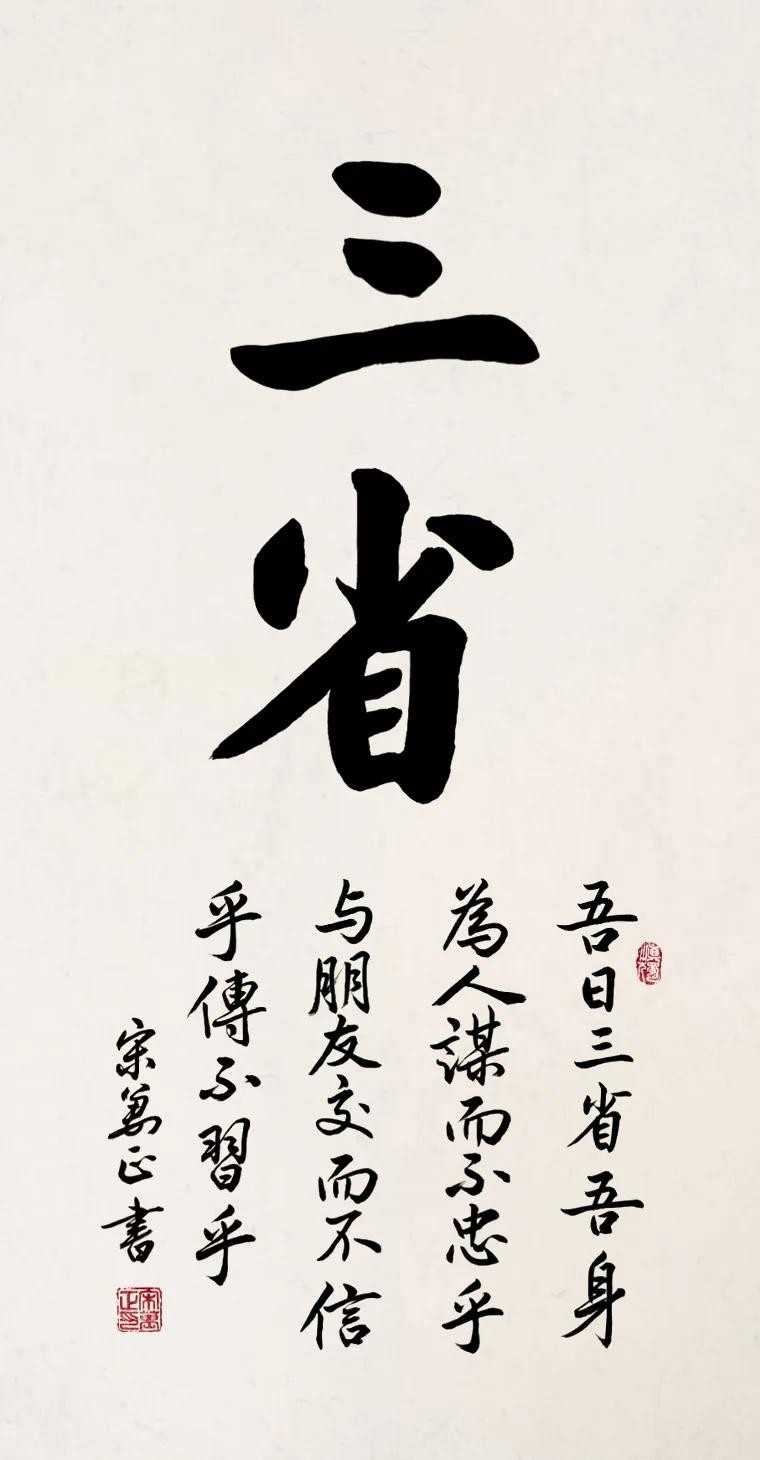 三省
吾日三省吾身
為人謀而不忠乎
与朋友交而不信
乎傳不習乎
宋萬正書
宋萬正印